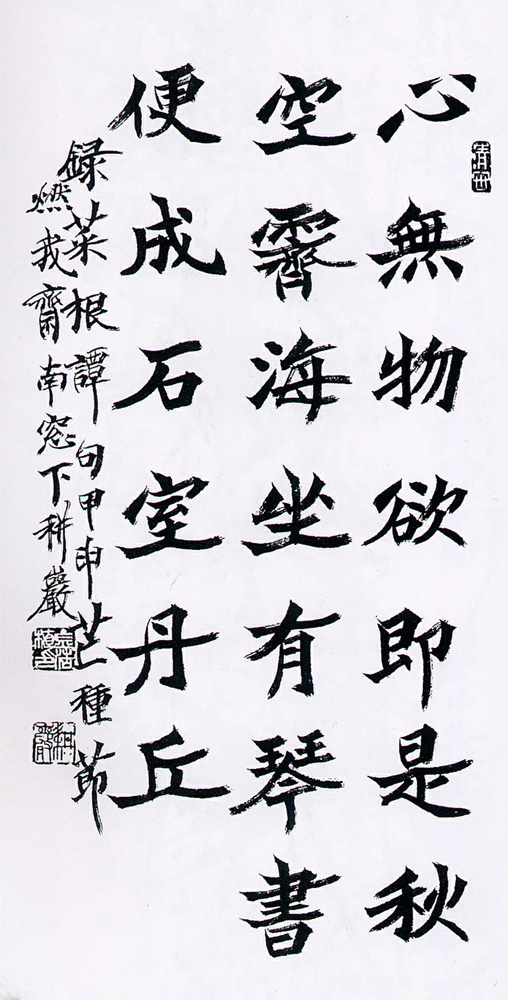 心無物欲即是秋
空霽海坐有琴書
便成石室丹丘
録菜根譚句甲申芒種節
燃我齋南窓下耕巖